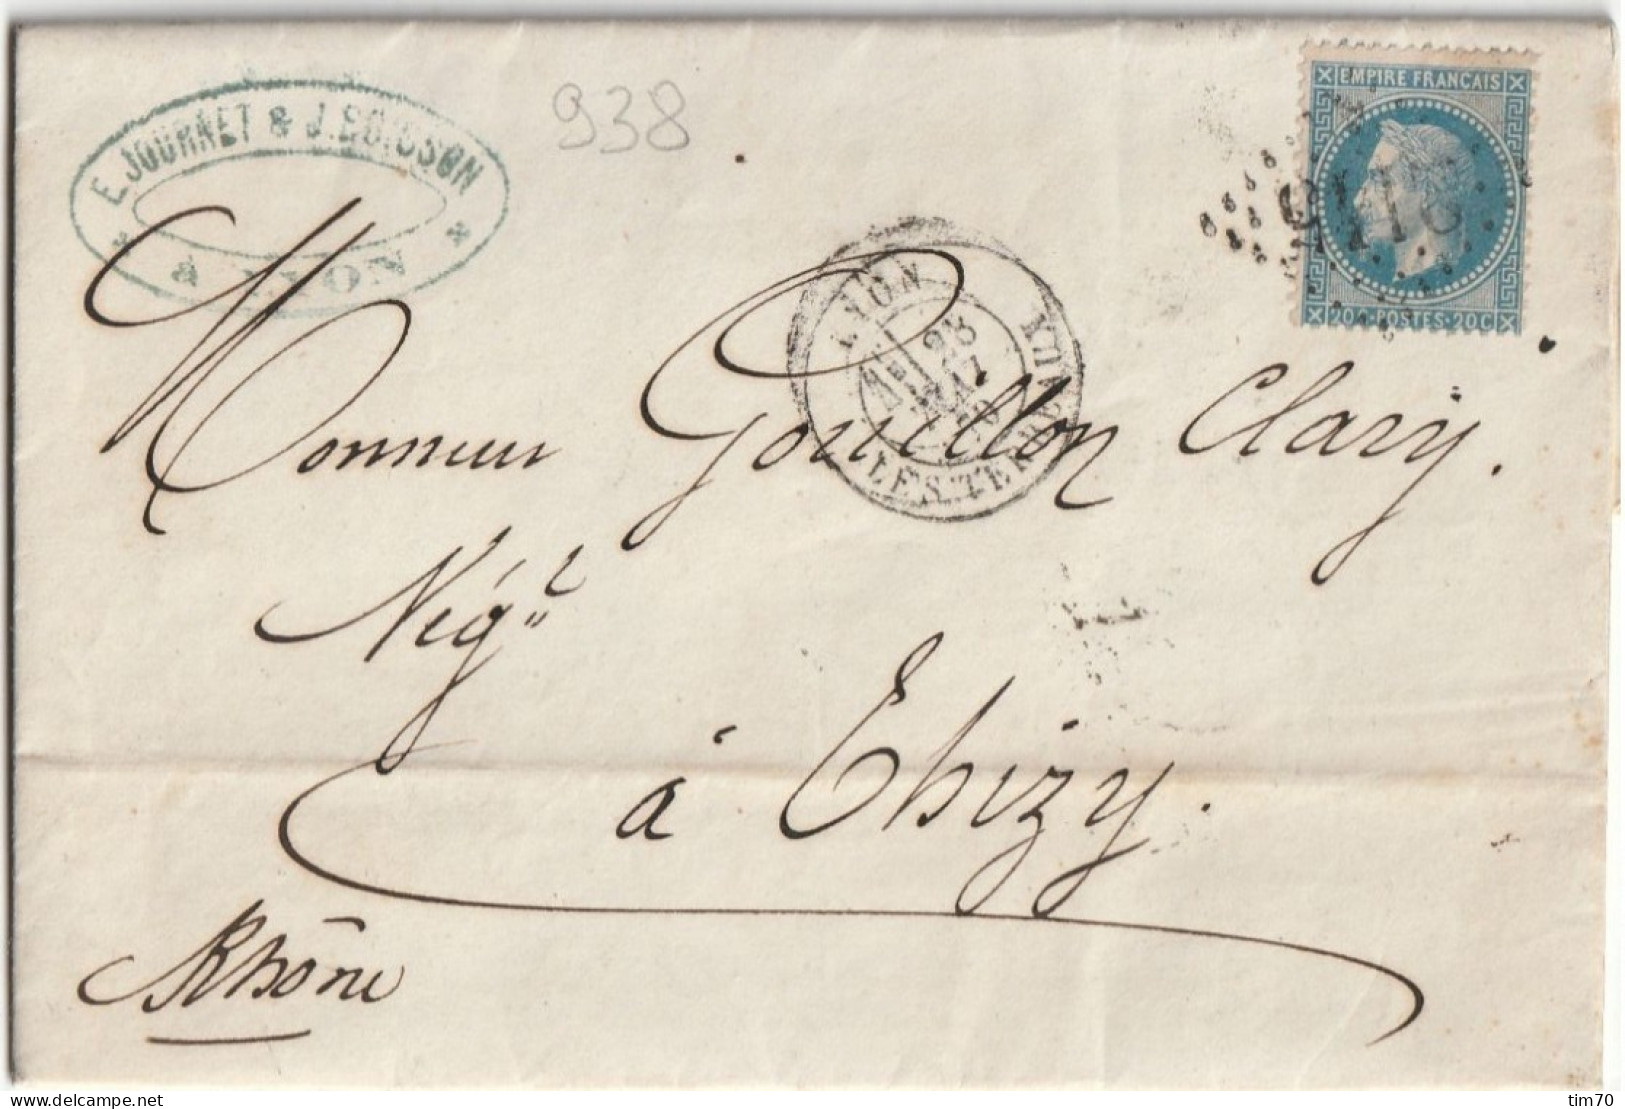 E. JOURNET & J. BOISSON
LYON
938
EMPIRE FRANÇAIS
20 C POSTES 20 C
LYON
28
MAI
70
LES TERREAUX
Monsieur Gouillon Clary.
Nég.t
à Thizy.
Rhône
delcampe.net
tim70